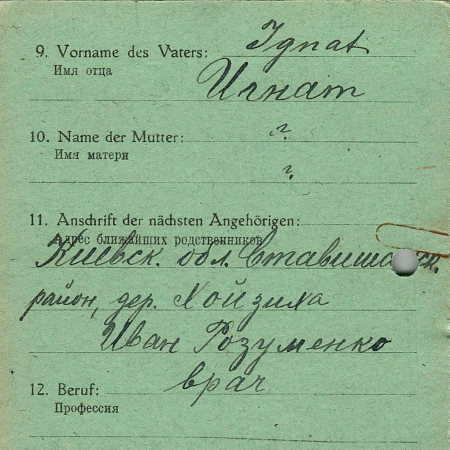 9. Vorname des Vaters: Ignat
Имя отца
Игнат
10. Name der Mutter: ?
Имя матери
?
11. Anschrift der nächsten Angehörigen:
Адрес ближайших родственников
Киевск. обл. Ставищанск.
район, дер. Хойзиха
Иван Розуменко
врач
12. Beruf:
Профессия